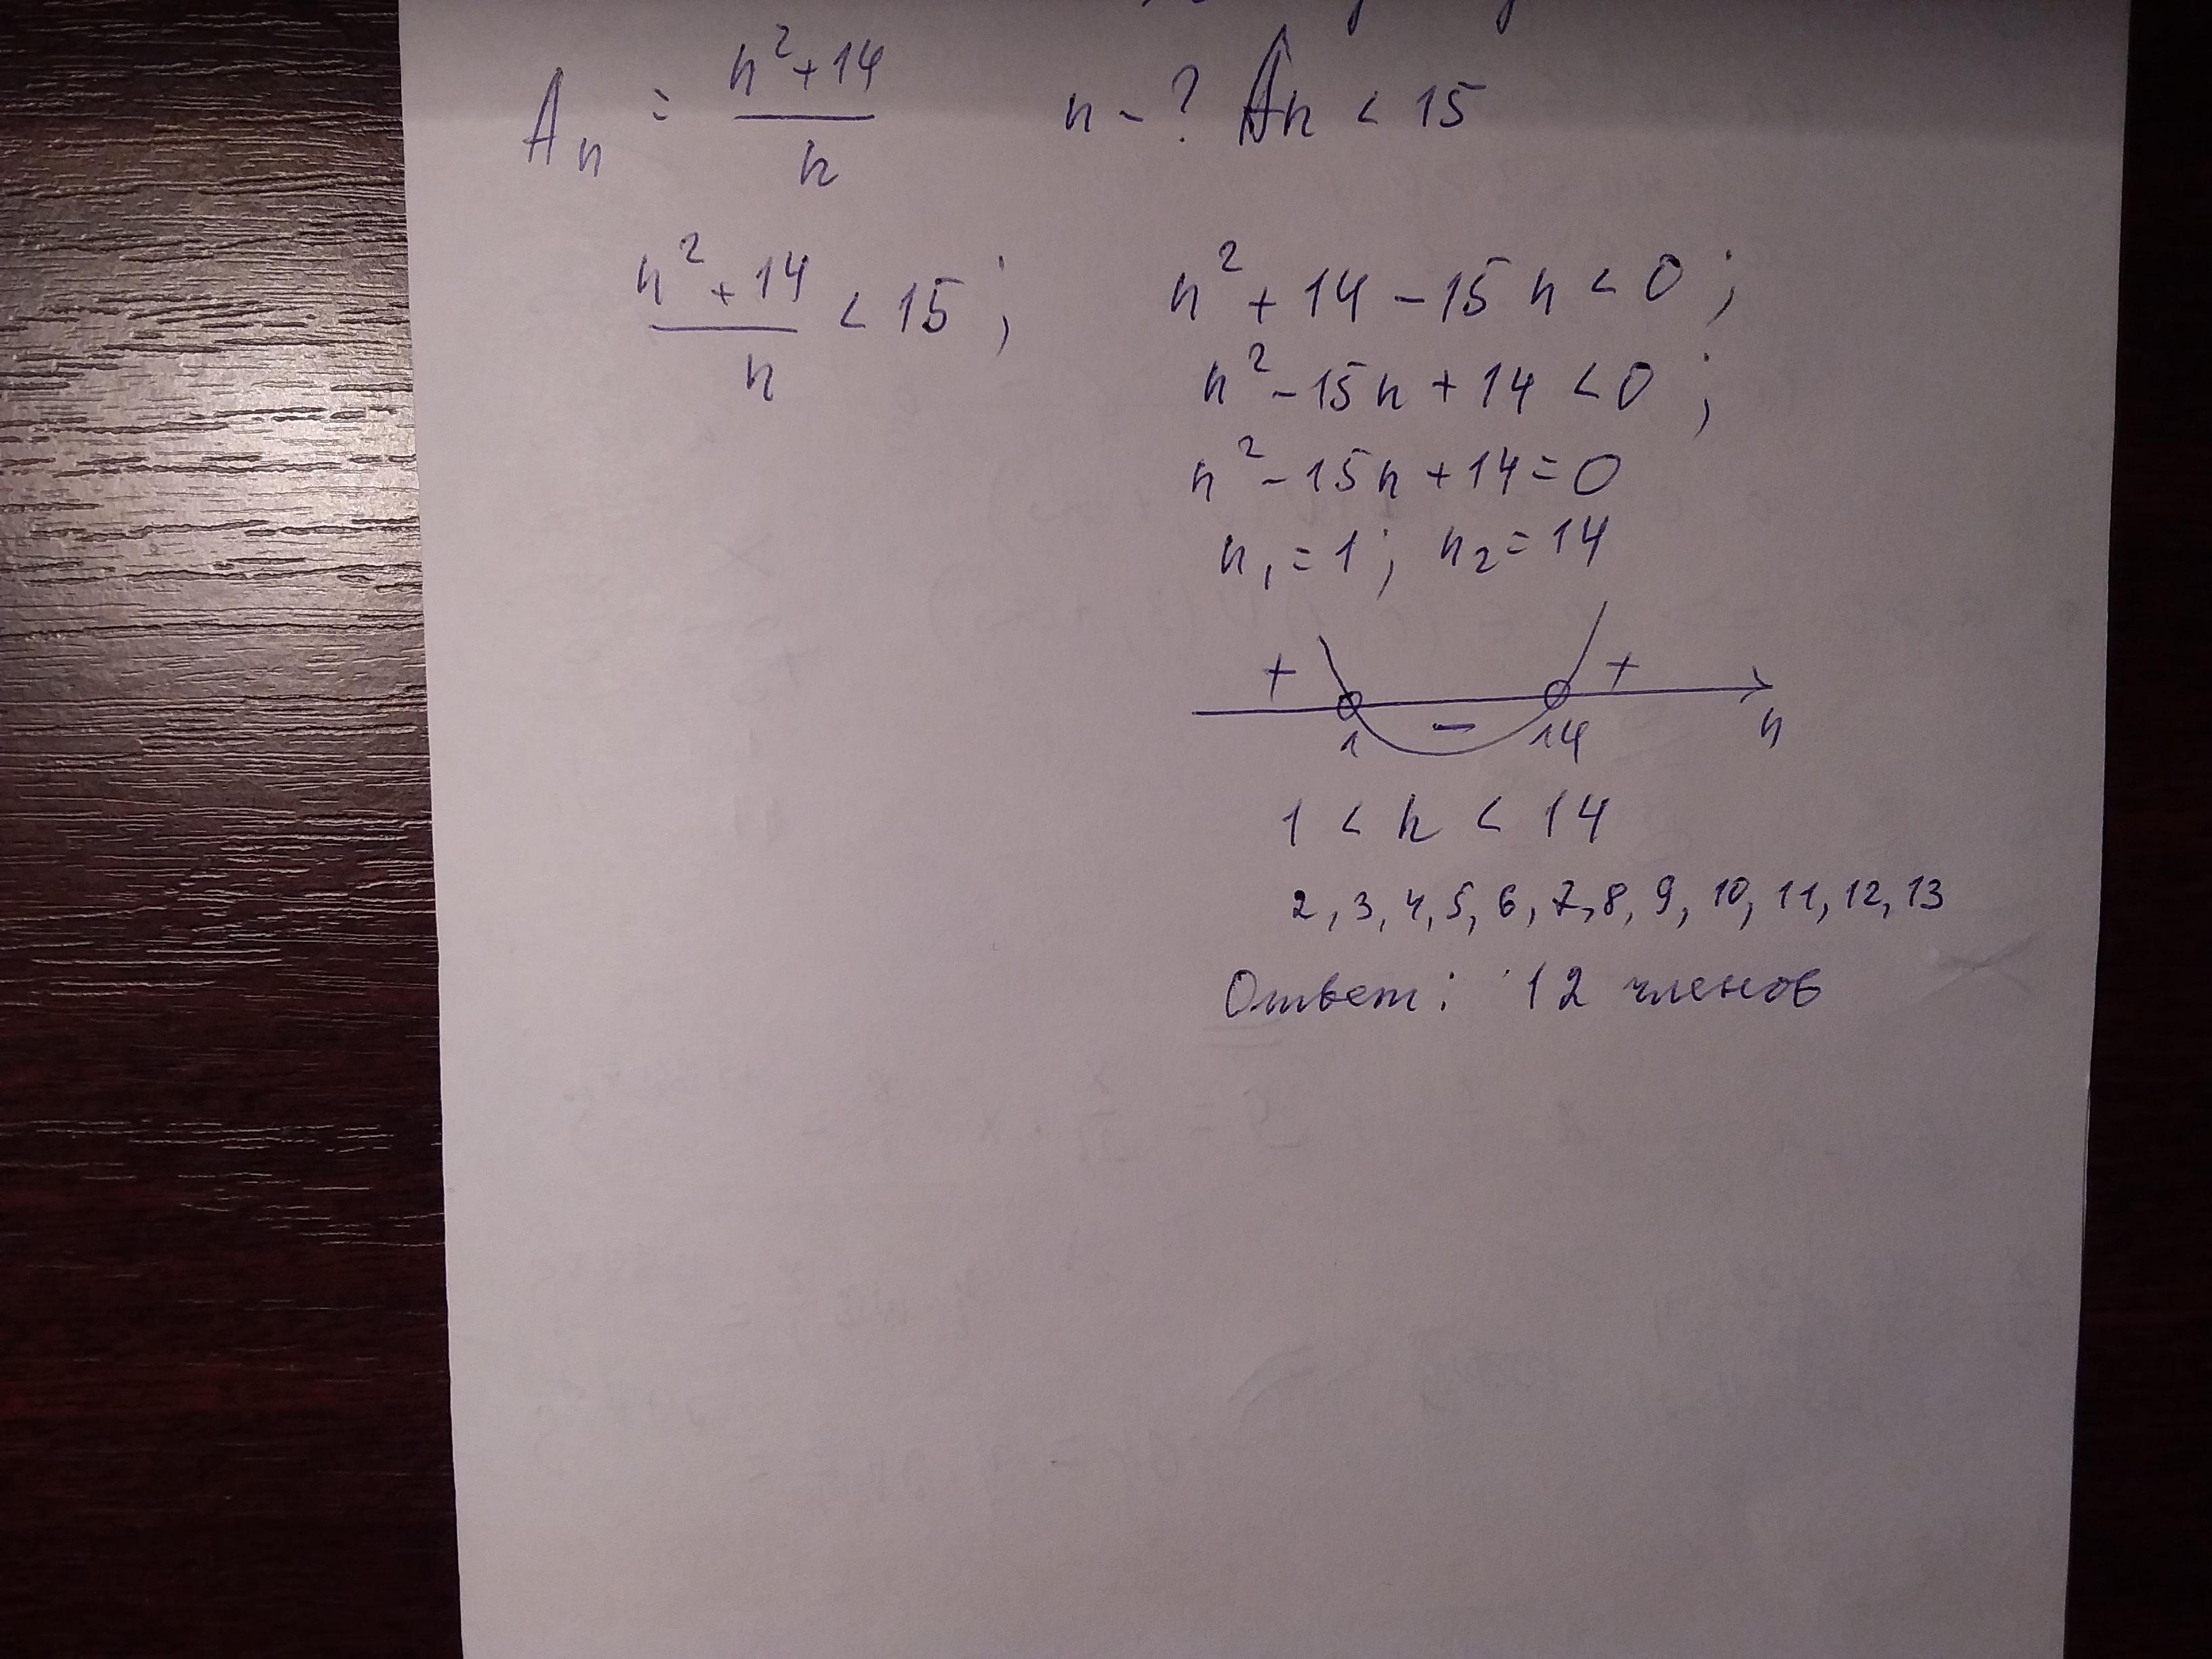 Aₙ = (n²+14)/n n - ? An < 15
(n²+14)/n < 15; n² + 14 - 15n < 0;
n² - 15n + 14 < 0;
n² - 15n + 14 = 0
n₁ = 1; n₂ = 14
+ - +
1 14 n
1 < n < 14
2, 3, 4, 5, 6, 7, 8, 9, 10, 11, 12, 13
Ответ: 12 членов